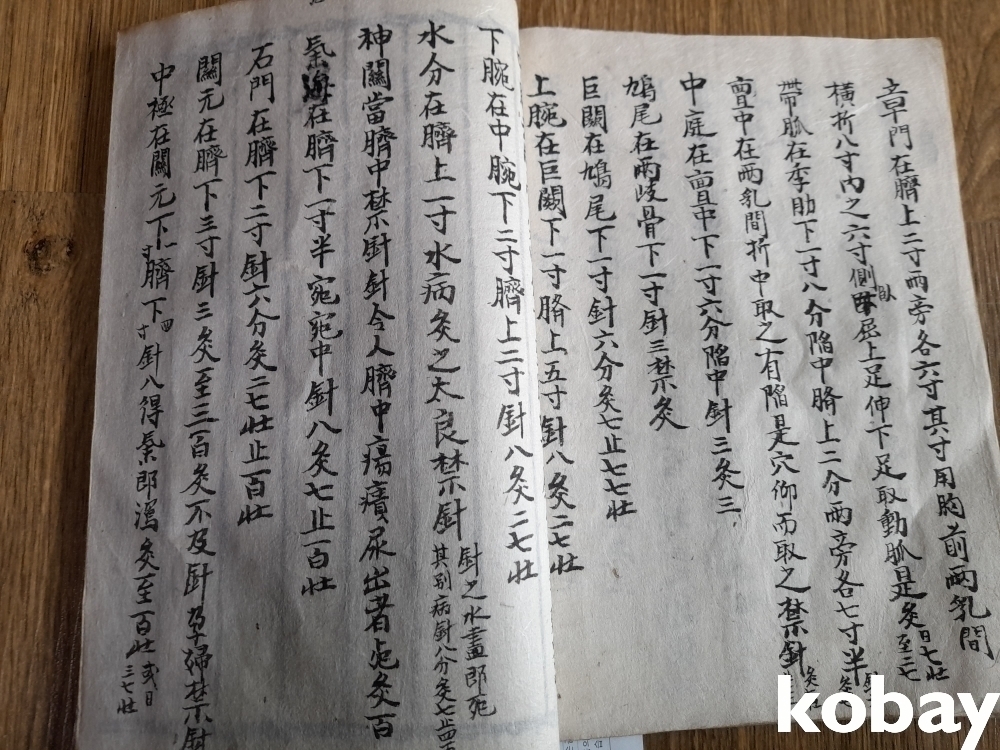 章門在臍上二寸兩旁各六寸其寸用胸前兩乳間
橫折八寸內之六寸側臥屈上足伸下足取動脈是灸日七壯至二七
帶脈在季肋下一寸八分陷中臍上二分兩旁各七寸半
亶中在兩乳間折中取之有陷是穴仰而取之禁針
中庭在亶中下一寸六分陷中針三灸三
鳩尾在兩歧骨下一寸針三禁灸
巨闕在鳩尾下一寸針六分灸七止七七壯
上腕在巨闕下一寸臍上五寸針八灸二七壯
下腕在中腕下二寸臍上二寸針八灸二七壯
水分在臍上一寸水病灸之大良禁針 針之水盡即死 其別病針八分灸七止四百
神闕當臍中禁針針令人臍中瘍潰尿出者死灸百
氣海在臍下一寸半宛宛中針八灸七止百壯
石門在臍下二寸針六分灸二七壯止百壯
關元在臍下三寸針三灸至三百灸不及針孕婦禁針
中極在關元下一寸臍下四寸針八得氣即瀉灸至百壯或日三七壯
kobay